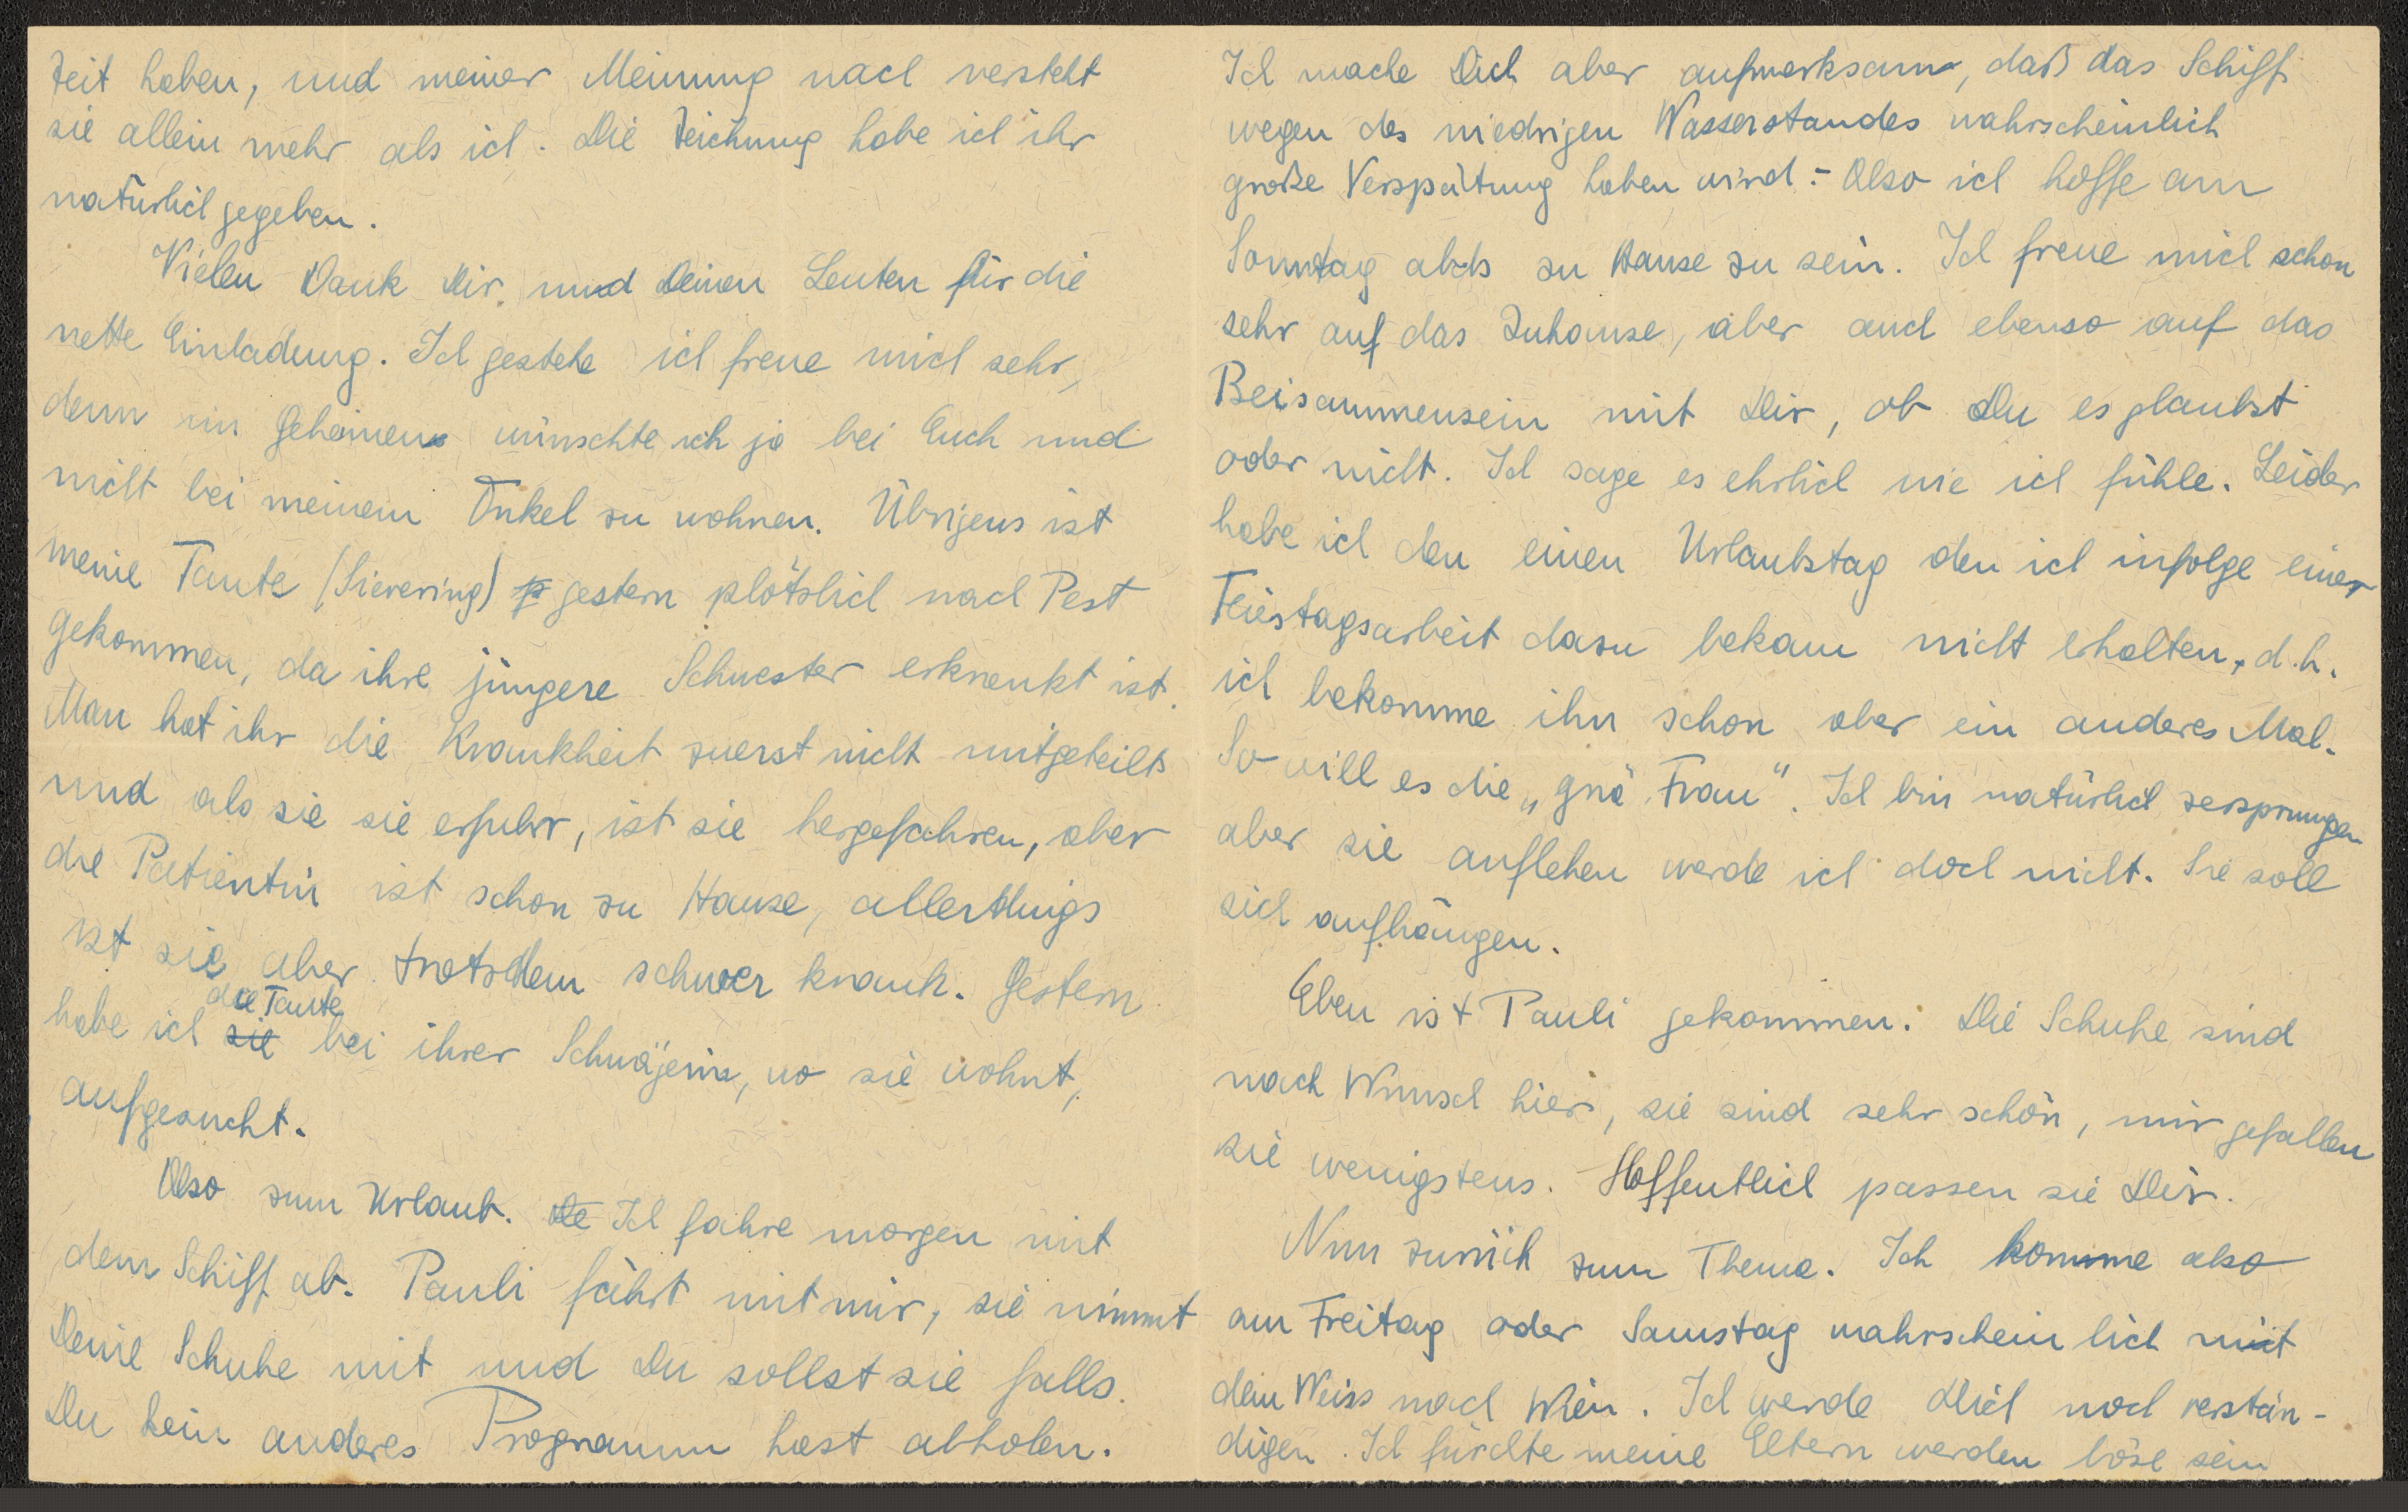 Zeit haben, und meiner Meinung nach versteht
sie allein mehr als ich. Die Zeichnung habe ich ihr
natürlich gegeben.
Vielen Dank Dir und Deinen Leuten für die
nette Einladung. Ich gestehe ich freue mich sehr,
denn im Geheimen wünschte ich ja bei Euch und
nicht bei meinem Onkel zu wohnen. Übrigens ist
meine Tante (Sievering) gestern plötzlich nach Pest
gekommen, da ihre jüngere Schwester erkrankt ist.
Man hat ihr die Krankheit zuerst nicht mitgeteilt
und als sie sie erfuhr, ist sie hergefahren, aber
die Patientin ist schon zu Hause, allerdings
ist sie aber trotzdem schwer krank. Gestern
habe ich sie die Tante bei ihrer Schwägerin, wo sie wohnt,
aufgesucht.
Also zum Urlaub. De Ich fahre morgen mit
dem Schiff ab. Pauli fährt mit mir, sie nimmt
Deine Schuhe mit und Du sollst sie falls
Du kein anderes Programm hast abholen.
Ich mache Dich aber aufmerksam, daß das Schiff
wegen des niedrigen Wasserstandes wahrscheinlich
große Verspätung haben wird.- Also ich hoffe am
Sonntag abds zu Hause zu sein. Ich freue mich schon
sehr auf das Zuhause, aber auch ebenso auf das
Beisammensein mit Dir, ob Du es glaubst
oder nicht. Ich sage es ehrlich wie ich fühle. Leider
habe ich den einen Urlaubstag den ich infolge einer
Feiertagsarbeit dazu bekam nicht erhalten, d.h.
ich bekomme ihn schon aber ein anderes Mal.
So will es die „gnä Frau". Ich bin natürlich zersprungen
aber sie anflehen werde ich doch nicht. Sie soll
sich aufhängen.
Eben ist Pauli gekommen. Die Schuhe sind
nach Wunsch hier, sie sind sehr schön, mir gefallen
sie wenigstens. Hoffentlich passen sie Dir.
Nun zurück zum Thema. Ich komme also
am Freitag oder Samstag wahrscheinlich mit
dem Weiss nach Wien. Ich werde Dich noch verstän-
digen. Ich fürchte meine Eltern werden böse sein